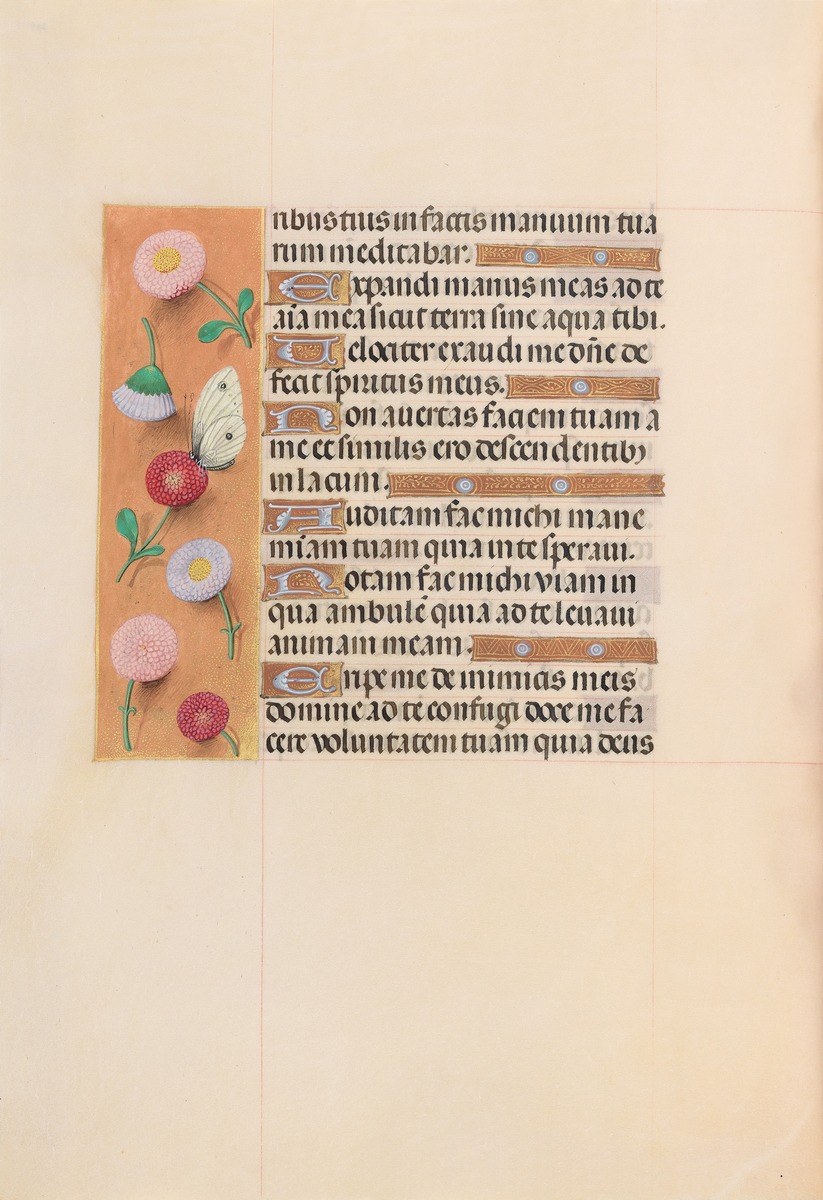 ribus tuis in factis manuum tua
rum meditabar.
Expandi manus meas ad te
aīa mea sicut terra sine aqua tibi.
Velociter exaudi me dn̄e de
fecit spiritus meus.
Non avertas faciem tuam a
me et similis ero descendentibꝫ
in lacum.
Auditam fac michi mane
mīam tuam quia in te speravi.
Notam fac michi viam in
qua ambulē quia ad te levavi
animam meam.
Eripe me de inimicis meis
domine ad te confugi doce me fa
cere voluntatem tuam quia deus